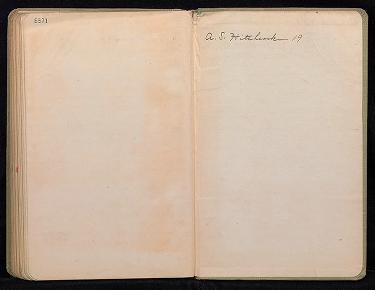 5571
A. S. Hitchcock 19